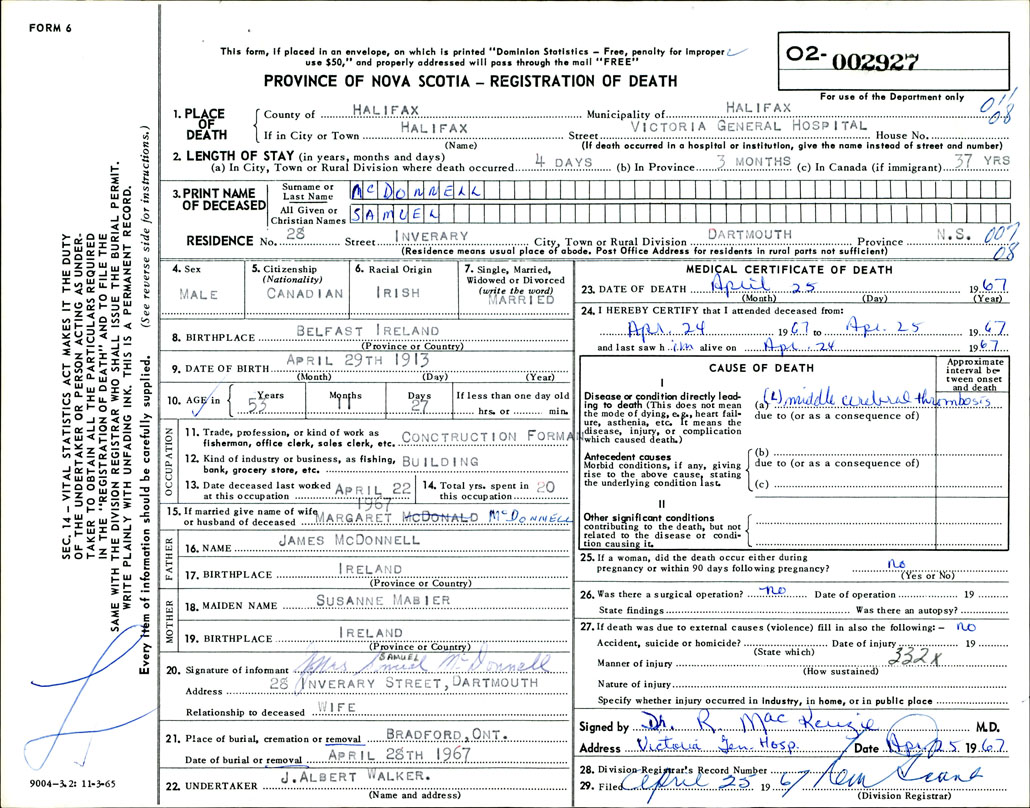 FORM 6
This form, if placed in an envelope, on which is printed "Dominion Statistics – Free, penalty for improper
use $50," and properly addressed will pass through the mail "FREE"
PROVINCE OF NOVA SCOTIA – REGISTRATION OF DEATH
O2- 002927
For use of the Department only
011
08
1. PLACE OF DEATH
County of HALIFAX Municipality of HALIFAX
If in City or Town HALIFAX Street VICTORIA GENERAL HOSPITAL House No.
(Name) (If death occurred in a hospital or institution, give the name instead of street and number)
2. LENGTH OF STAY (in years, months and days)
(a) In City, Town or Rural Division where death occurred 4 DAYS (b) In Province 3 MONTHS (c) In Canada (if immigrant) 37 YRS
3. PRINT NAME OF DECEASED
Surname or Last Name McDONNELL
All Given or Christian Names SAMUEL
RESIDENCE No. 28 Street INVERARY City, Town or Rural Division DARTMOUTH Province N.S. 007
08
(Residence means usual place of abode. Post Office Address for residents in rural parts not sufficient)
4. Sex
MALE
5. Citizenship
(Nationality)
CANADIAN
6. Racial Origin
IRISH
7. Single, Married,
Widowed or Divorced
(write the word)
MARRIED
8. BIRTHPLACE BELFAST IRELAND
(Province or Country)
9. DATE OF BIRTH APRIL 29TH 1913
(Month) (Day) (Year)
10. AGE in Years 53 Months 11 Days 27 If less than one day old
hrs. or min.
OCCUPATION
11. Trade, profession, or kind of work as
fisherman, office clerk, sales clerk, etc. CONCTRUCTION FORMAN
12. Kind of industry or business, as fishing,
bank, grocery store, etc. BUILDING
13. Date deceased last worked
at this occupation APRIL 22 1967
14. Total yrs. spent in
this occupation 20
15. If married give name of wife
or husband of deceased MARGARET MCDONALD McDONNELL
FATHER
16. NAME JAMES MCDONNELL
17. BIRTHPLACE IRELAND
(Province or Country)
MOTHER
18. MAIDEN NAME SUSANNE MABIER
19. BIRTHPLACE IRELAND
(Province or Country)
SAMUEL
20. Signature of informant Mrs Smuel McDonnell
Address 28 INVERARY STREET, DARTMOUTH
Relationship to deceased WIFE
21. Place of burial, cremation or removal BRADFORD, ONT.
Date of burial or removal APRIL 28TH 1967
22. UNDERTAKER J. ALBERT WALKER.
(Name and address)
MEDICAL CERTIFICATE OF DEATH
23. DATE OF DEATH April 25 1967
(Month) (Day) (Year)
24. I HEREBY CERTIFY that I attended deceased from:
Apr. 24 1967 to Apr. 25 1967
and last saw h im alive on Apr. 24 1967
CAUSE OF DEATH
Approximate
interval be-
tween onset
and death
I
Disease or condition directly lead-
ing to death (This does not mean
the mode of dying, e.g., heart fail-
ure, asthenia, etc. It means the
disease, injury, or complication
which caused death.)
(a) (L) middle cerebral thrombosis
due to (or as a consequence of)
Antecedent causes
Morbid conditions, if any, giving
rise to the above cause, stating
the underlying condition last.
(b)
due to (or as a consequence of)
(c)
II
Other significant conditions
contributing to the death, but not
related to the disease or condi-
tion causing it.
25. If a woman, did the death occur either during
pregnancy or within 90 days following pregnancy? no
(Yes or No)
26. Was there a surgical operation? no Date of operation 19
State findings Was there an autopsy?
27. If death was due to external causes (violence) fill in also the following:– no
Accident, suicide or homicide? Date of injury 19
(State which)
Manner of injury 332x
(How sustained)
Nature of injury
Specify whether injury occurred in Industry, in home, or in public place
Signed by Dr. R. MacKenzie M.D.
Address Victoria Gen. Hosp. Date Apr 25 1967
28. Division Registrar's Record Number
29. Filed April 25 1967
(Division Registrar)
SEC. 14 – VITAL STATISTICS ACT MAKES IT THE DUTY
OF THE UNDERTAKER OR PERSON ACTING AS UNDER-
TAKER TO OBTAIN ALL THE PARTICULARS REQUIRED
IN THE "REGISTRATION OF DEATH" AND TO FILE THE
SAME WITH THE DIVISION REGISTRAR WHO SHALL ISSUE THE BURIAL PERMIT.
WRITE PLAINLY WITH UNFADING INK. THIS IS A PERMANENT RECORD.
Every item of information should be carefully supplied. (See reverse side for instructions.)
9004–3.2: 11-3-65